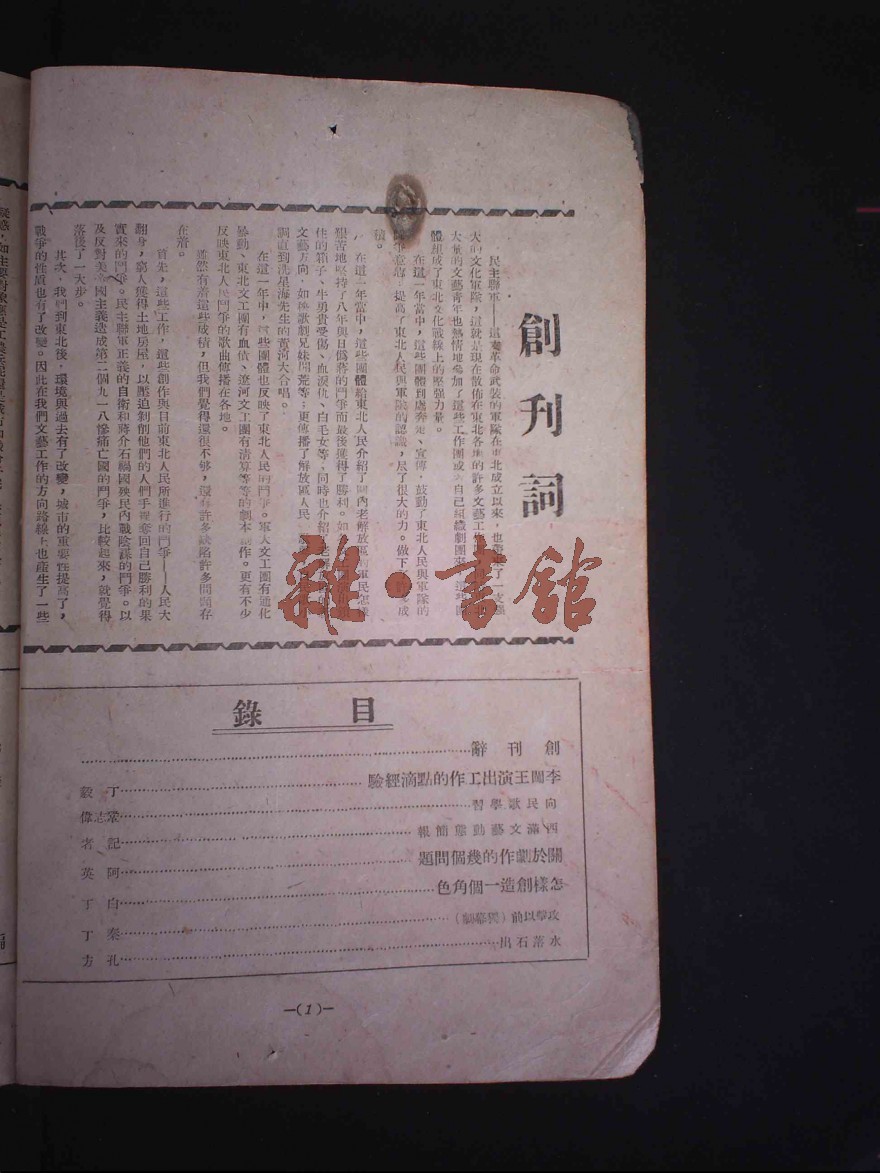 創刊詞
民主聯軍——這支革命武裝的軍隊在東北成立以來，也帶來了一支强
大的文化軍隊，這就是現在散佈在東北各地的許多文藝工作
大量的文藝青年也熱情地參加了這些工作團或自己組織劇團來
體組成了東北文化戰線上的堅强力量。
在這一年當中，這些團體到處奔走、宣傳，鼓動了東北人民與軍隊的
意志，提高了東北人民與軍隊的認識，尽了很大的力。做下
積。
在這一年當中，這些團體給東北人民介紹了國內老解放區的軍民怎樣
艱苦地堅持了八年與日僞蔣的鬥爭而最後獲得了勝利。如
住的箱子、牛勇貴受傷、血淚仇、白毛女等、同時也介紹
文藝方向，如秧歌劇兄妹開荒等；更傳播了解放區人民
調直到洗星海先生的黃河大合唱。
在這一年中，這些團體也反映了東北人民的鬥爭。軍大文工團有通化
暴動、東北文工團有血債、遼河文工團有清算等等的劇本創作。更有不少
反映東北人民鬥爭的歌曲傳播在各地。
雖然有着這些成積，但我們覺得還很不够，還有許多缺陷許多問題存
在着。
首先，這些工作，這些創作與目前東北人民所進行的鬥爭——人民大
翻身，窮人獲得土地房屋，以壓迫剝削他們的人們手裡奪回自己勝利的果
實來的鬥爭。民主聯軍正義的自衛和蔣介石禍國殃民內戰陰謀的鬥爭。以
及反對美帝國主義造成第二個九一八慘痛亡國的鬥爭，比較起來，就覺得
落後了一大步。
其次，我們到東北後，環境與過去有了改變，城市的重要性提高了，
戰爭的性質也有了改變。因此在我們文藝工作的方向路線上也產生了一些
雜·書館
目錄
創刊辭
李闖王演出工作的點滴經驗……丁毅
向民歌學習……鞏志偉
西滿文藝動態簡報……記者
關於劇作的幾個問題……阿英
怎樣創造一個角色……白于
攻擊以前（獨幕劇）……秦丁
水落石出……孔方
—(1)—